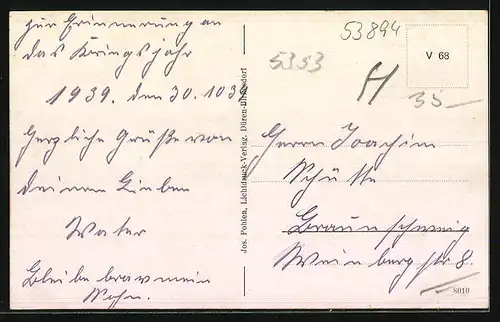 zur Erinnerung an
das Kriegsjahr
1939. den 30.10.39
Herzliche Grüße von
deinem Lieben
Vater
Bleibe brav mein
Sohn.
Jos. Pohlen, Lichtdruck-Verlag, Düren-Birkesdorf
53894
5353
H
V 68
35
Herrn Joachim
Schütte
Braunschweig
Weinbergstr 8.
8010